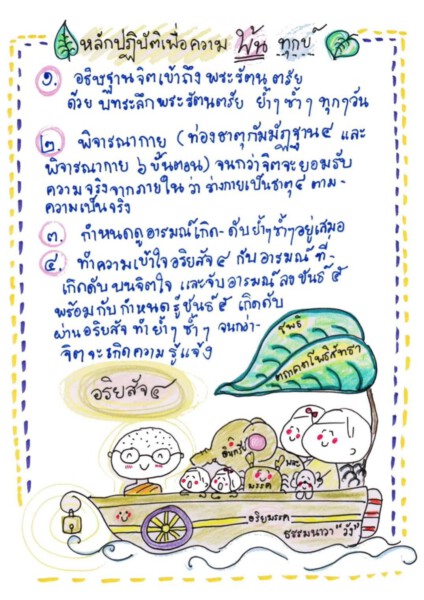 หลักปฏิบัติเพื่อความ พ้น ทุกข์
๑. อธิษฐานจิตเข้าถึง พระรัตนตรัย
ด้วย บทระลึกพระรัตนตรัย ย้ำๆ ซ้ำๆ ทุกๆ วัน
๒. พิจารณากาย (ท่องธาตุกัมมัฏฐาน๔ และ
พิจารณากาย ๖ ขั้นตอน) จนกว่าจิตจะยอมรับ
ความจริงจากภายใน ว่า ร่างกายเป็นธาตุ๔ ตาม-
ความเป็นจริง
๓. กำหนดดูอารมณ์เกิด-ดับย้ำๆซ้ำๆอยู่เสมอ
๔. ทำความเข้าใจอริยสัจ๔ กับ อารมณ์ ที่-
เกิดดับ บนจิตใจ และจับอารมณ์ ลงขันธ์ ๕
พร้อมกับ กำหนดรู้ขันธ์ ๕ เกิดดับ
ผ่านอริยสัจ ทำย้ำๆ ซ้ำๆ จนกว่า-
จิตจะเกิดความ รู้แจ้ง
อริยสัจ๔
โพธิ
ตถาคตโพธิสัทธา
อินทรีย์
มรรค
พละ
อริยมรรค
ธรรมนาวา "วัง"